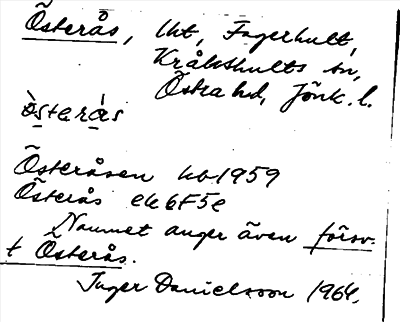 Österås, lht, Fagerhult,
Kråkshults sn,
Östra hd, Jönk. l.
ö̀sterås
Österåsen hb 1959
Österås ek 6F5e
Namnet anger även försv.
t Österås.
Inger Danielsson 1964.